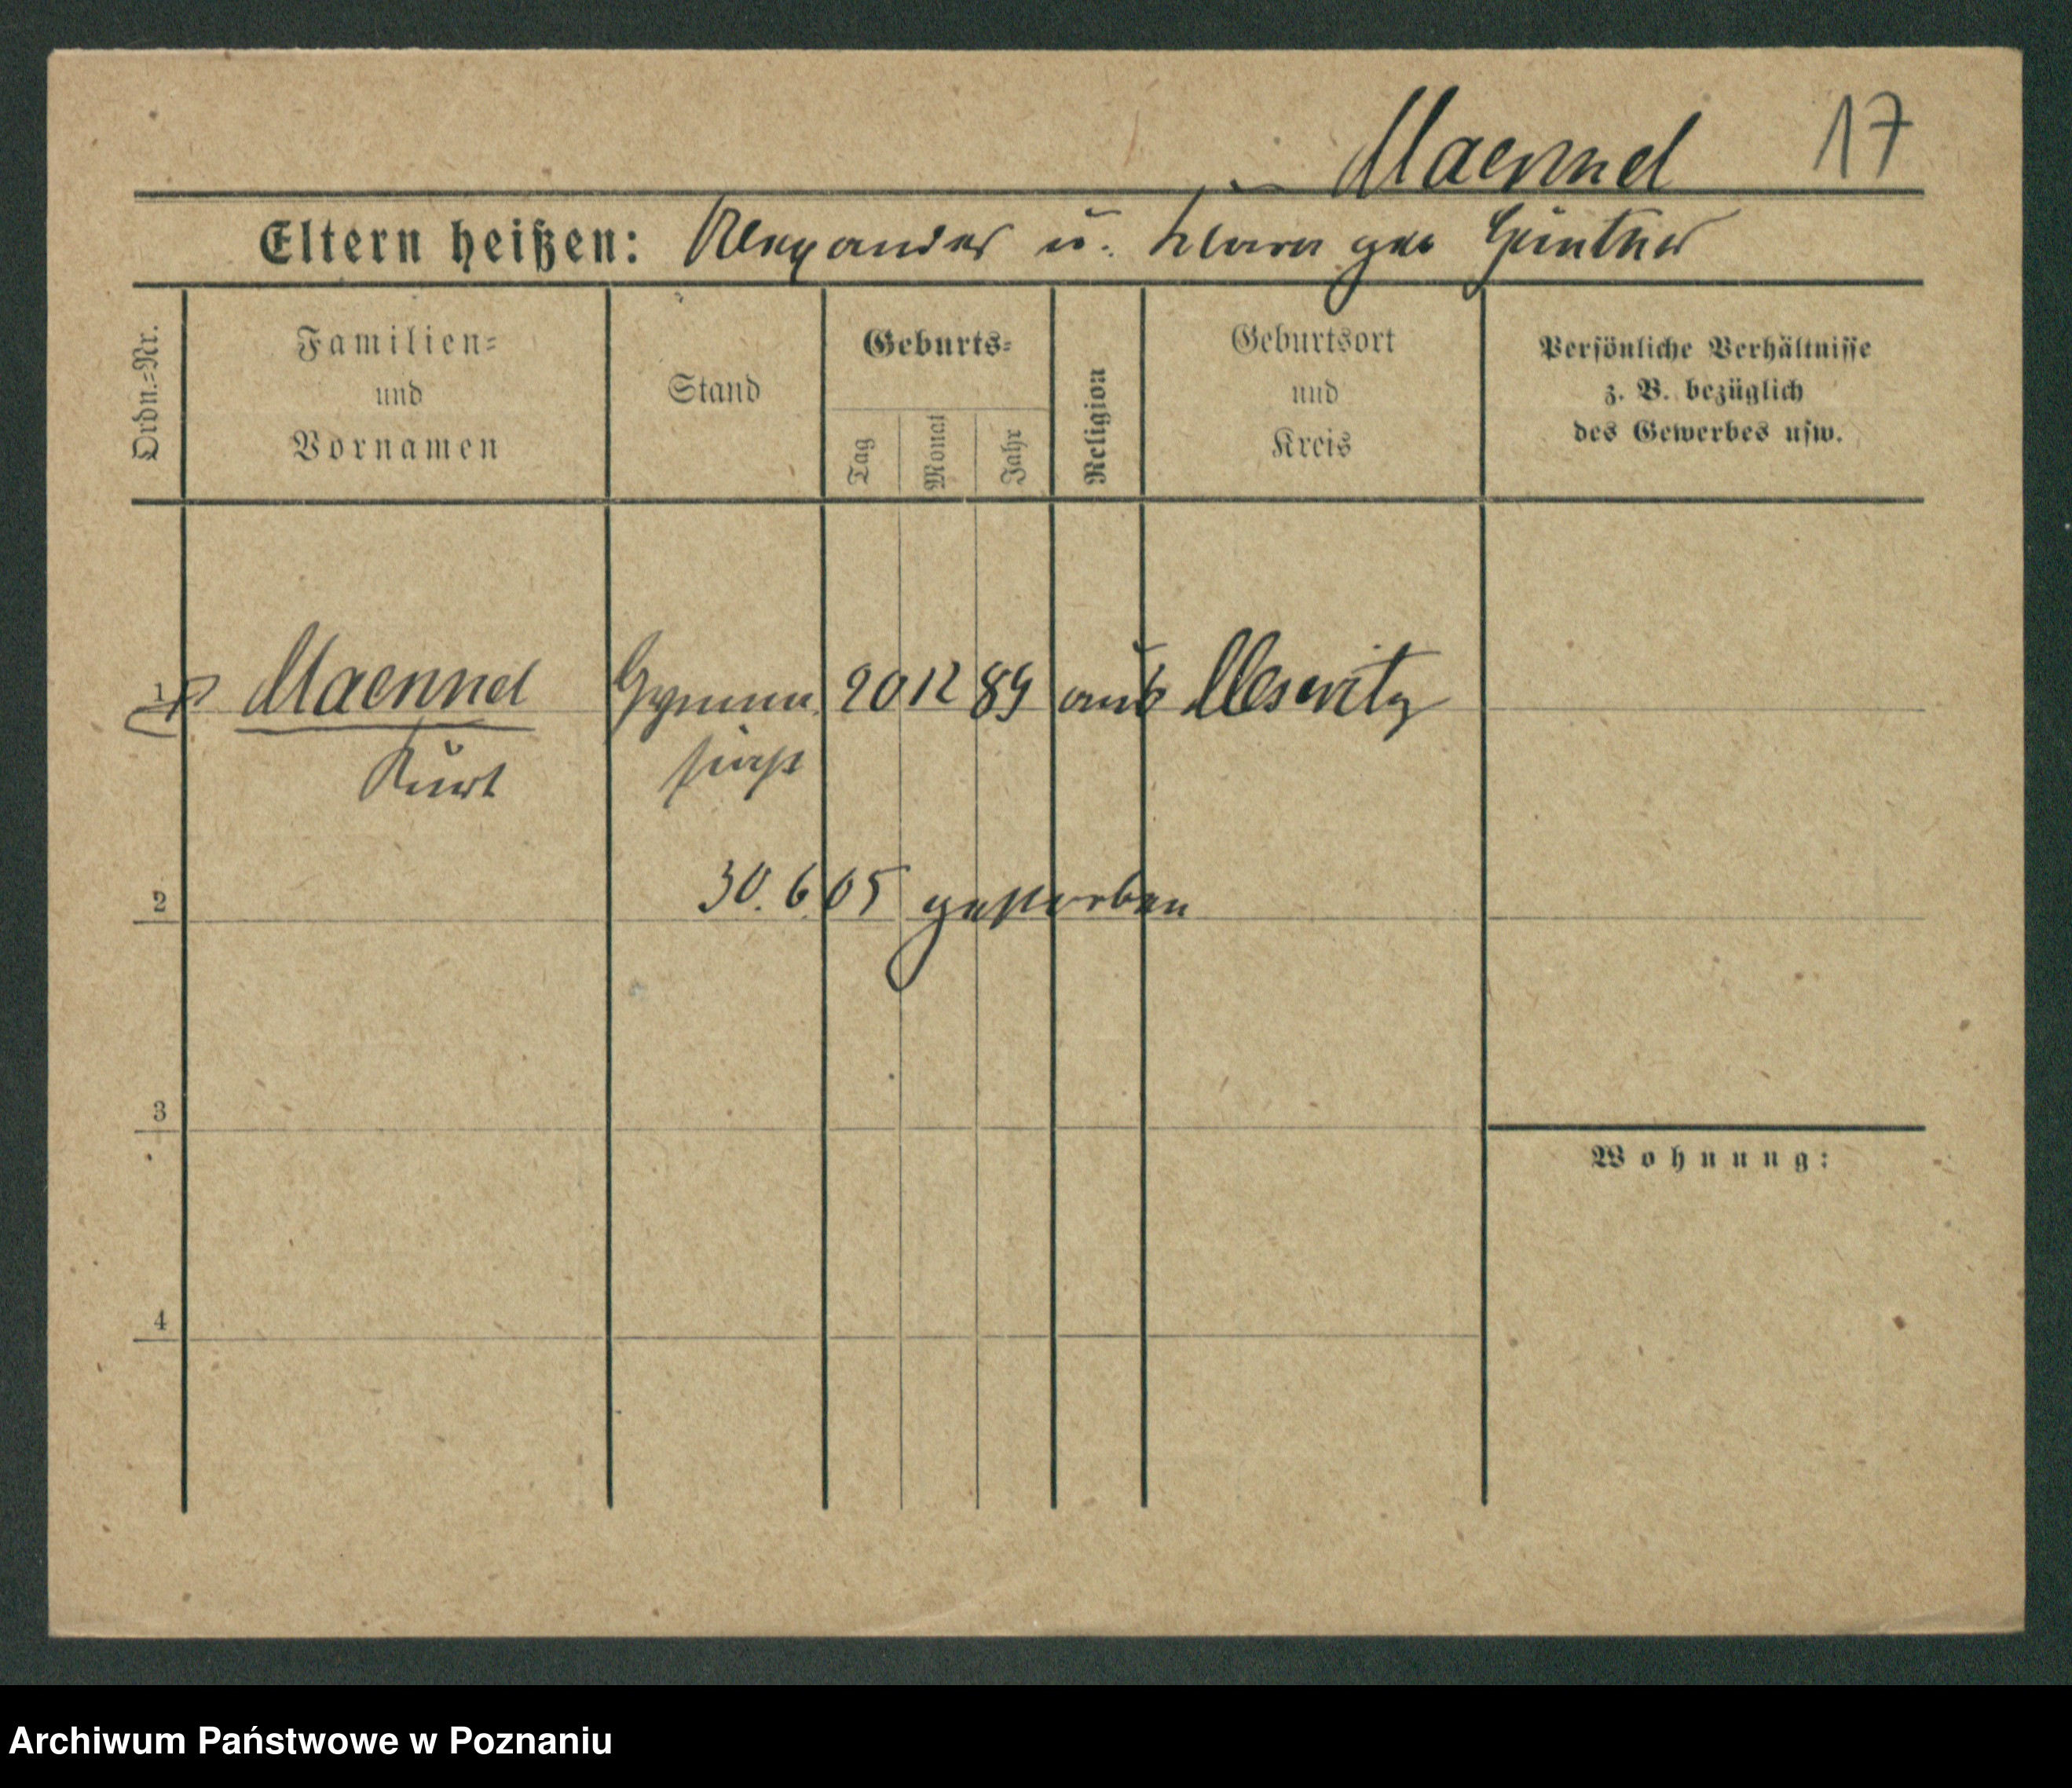 Maennel 17
Eltern heißen: Alexander u. Klara geb Güntner
Ordn.=Nr.
Familien=
und
Vornamen
Stand
Geburts=
Tag
Monat
Jahr
Religion
Geburtsort
und
Kreis
Persönliche Verhältnisse
z. B. bezüglich
des Gewerbes usw.
1 Maennel 20 12 89 Meseritz
Kurt
2 30.6.05 gestorben
3
Wohnung:
4
Archiwum Państwowe w Poznaniu